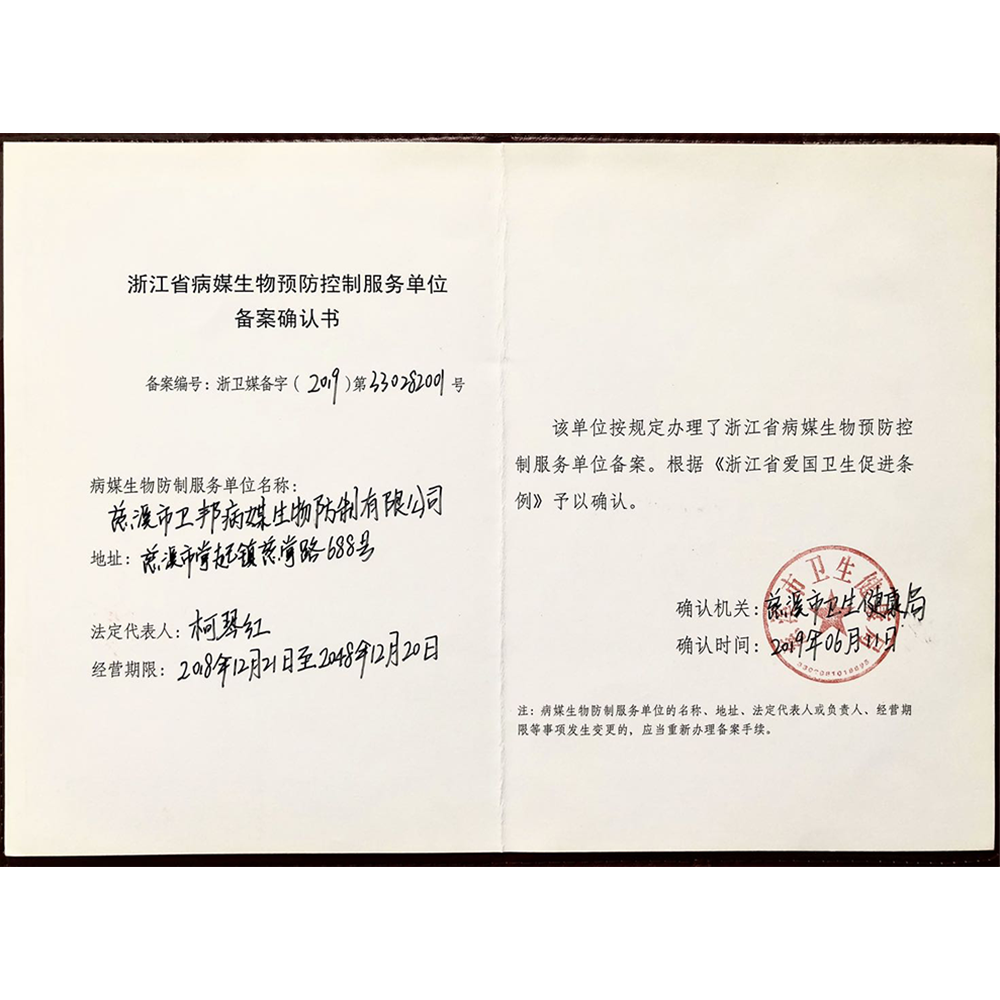 浙江省病媒生物预防控制服务单位
备案确认书
备案编号：浙卫媒备字（2019）第330282001号
病媒生物防制服务单位名称：
慈溪市卫邦病媒生物防制有限公司
地址：慈溪市掌起镇慈掌路688号
法定代表人：柯琴红
经营期限：2018年12月21日至2048年12月20日
该单位按规定办理了浙江省病媒生物预防控
制服务单位备案。根据《浙江省爱国卫生促进条
例》予以确认。
确认机关：慈溪市卫生健康局
确认时间：2019年06月11日
慈溪市卫生健康局
注：病媒生物防制服务单位的名称、地址、法定代表人或负责人、经营期
限等事项发生变更的，应当重新办理备案手续。